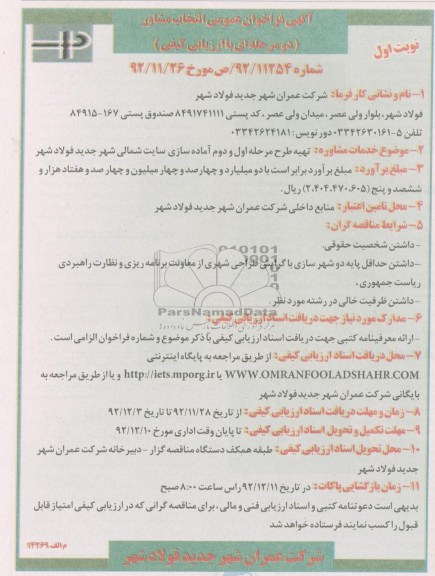 آگهی فراخوان عمومی انتخاب مشاور
(دو مرحله ای با ارزیابی کیفی)
نوبت اول
شماره ۹۲/۱۱۲۵۴/ص مورخ ۹۲/۱۱/۲۶
۱- نام و نشانی کارفرما: شرکت عمران شهر جدید فولاد شهر
فولاد شهر، بلوار ولی عصر، میدان ولی عصر، کد پستی ۸۴۹۱۷۴۱۱۱۱ صندوق پستی ۱۶۷-۸۴۹۱۵
تلفن ۵-۰۳۳۴۲۶۳۰۱۶۱ دورنویس: ۰۳۳۴۲۶۲۴۱۸۱
۲- موضوع خدمات مشاوره: تهیه طرح مرحله اول و دوم آماده سازی سایت شمالی شهر جدید فولاد شهر
۳- مبلغ برآورد: مبلغ برآورد برابر است با دو میلیارد و چهارصد و چهار میلیون و چهار صد و هفتاد هزار و
ششصد و پنج (۲،۴۰۴،۴۷۰،۶۰۵) ریال.
۴- محل تامین اعتبار: منابع داخلی شرکت عمران شهر جدید فولاد شهر
۵- شرایط مناقصه گران:
-داشتن شخصیت حقوقی.
-داشتن حداقل پایه دو شهر سازی با گرایش طراحی شهری از معاونت برنامه ریزی و نظارت راهبردی
ریاست جمهوری.
-داشتن ظرفیت خالی در رشته مورد نظر.
ParsNamadData
۶- مدارک مورد نیاز جهت دریافت اسناد ارزیابی کیفی:
- ارائه معرفینامه کتبی جهت دریافت اسناد ارزیابی کیفی با ذکر موضوع و شماره فراخوان الزامی است.
۷- محل دریافت اسناد ارزیابی کیفی: از طریق مراجعه به پایگاه اینترنتی
WWW.OMRANFOOLADSHAHR.COM یا http://iets.mporg.ir و یا از طریق مراجعه به
بایگانی شرکت عمران شهر جدید فولاد شهر
۸- زمان و مهلت دریافت اسناد ارزیابی کیفی: از تاریخ ۹۲/۱۱/۲۸ تا تاریخ ۹۲/۱۲/۳
۹- مهلت تکمیل و تحویل اسناد ارزیابی کیفی: تا پایان وقت اداری مورخ ۹۲/۱۲/۱۰
۱۰- محل تحویل اسناد ارزیابی کیفی: طبقه همکف دستگاه مناقصه گزار - دبیرخانه شرکت عمران شهر
جدید فولاد شهر
۱۱- زمان بازگشایی پاکات: در تاریخ ۹۲/۱۲/۱۱ راس ساعت ۸:۰۰ صبح
بدیهی است دعوتنامه کتبی و اسناد ارزیابی فنی و مالی، برای مناقصه گرانی که در ارزیابی کیفی امتیاز قابل
قبول را کسب نمایند فرستاده خواهد شد
م الف ۱۴۳۶۹
شرکت عمران شهر جدید فولاد شهر